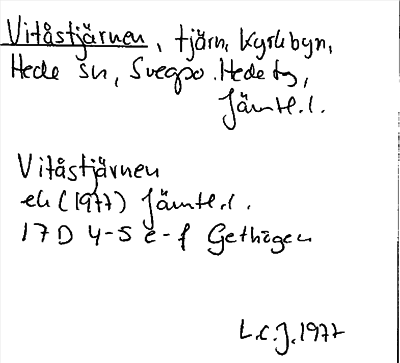 Vitåstjärnen, tjärn, Kyrkbyn,
Hede sn, Svegpo. Hede tg,
Jämtl.l.
Vitåstjärnen
ek (1977) Jämtl.l.
17D 4-5 e-f Gethågen
L.C.J. 1977